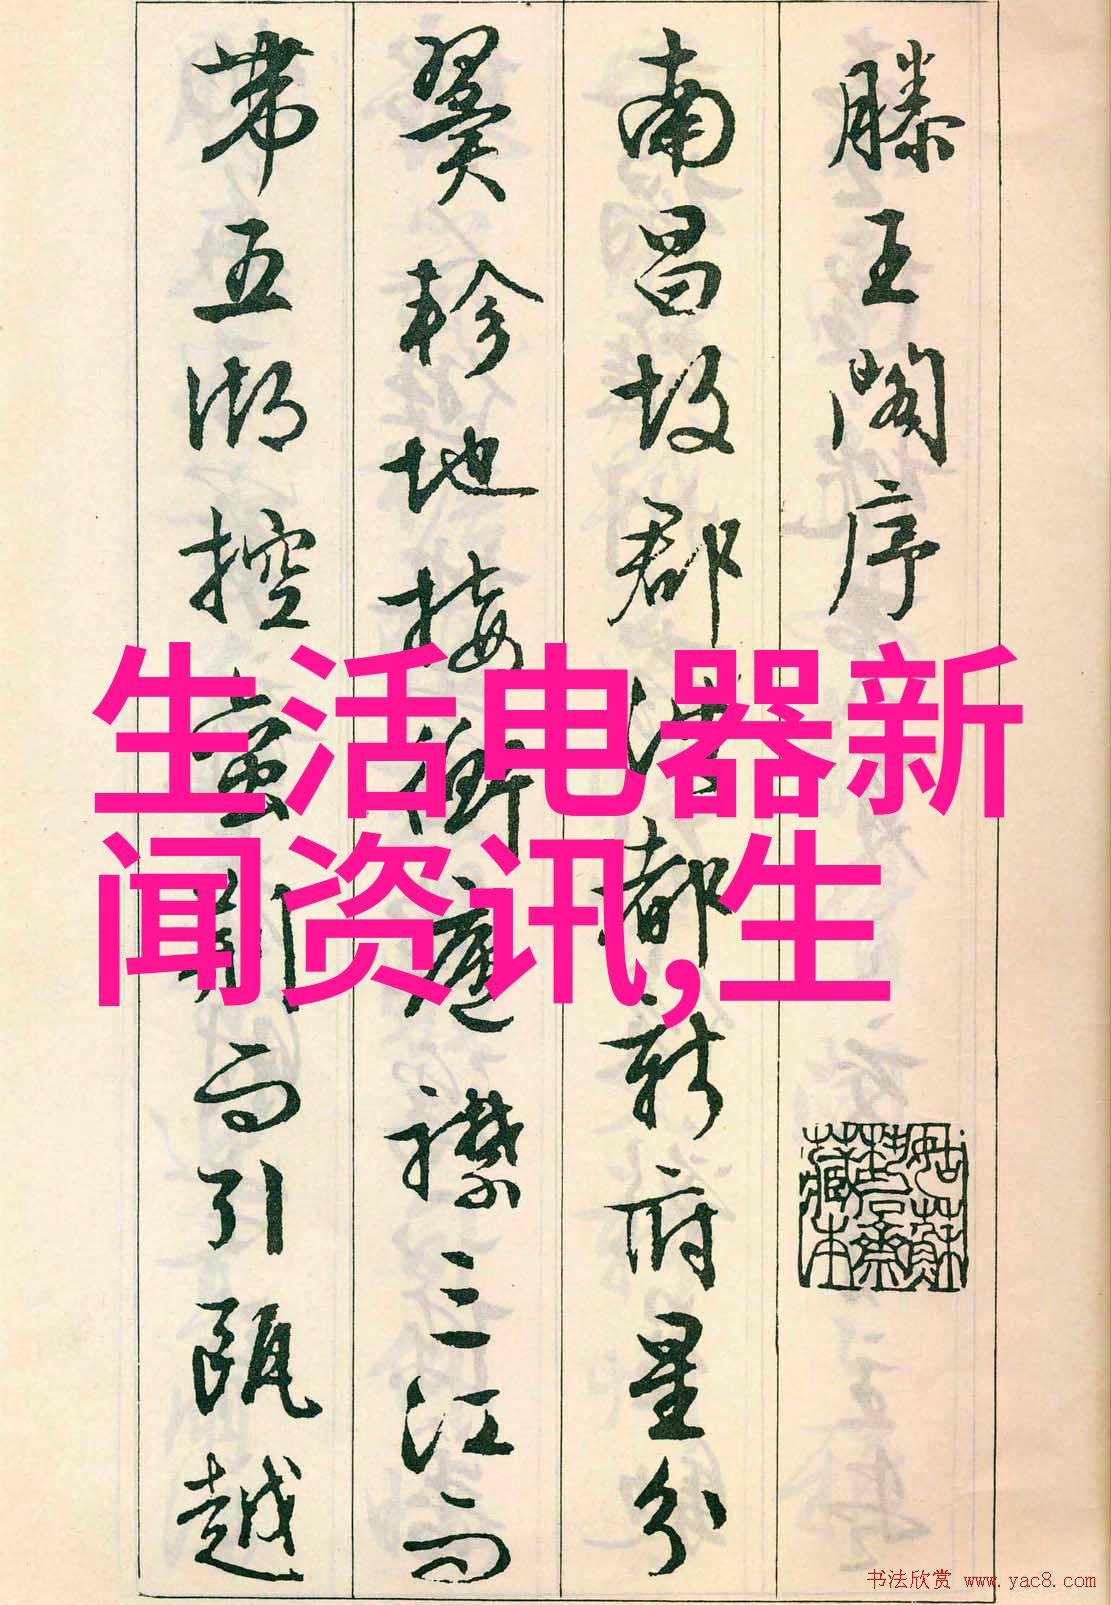 滕王閣序
南昌故郡洪都新府星分
翼軫地接衡廬襟三江而
帶五湖控蛮荆而引甌越
生活电器新
闻资讯,生
书法欣赏 www.yac8.com